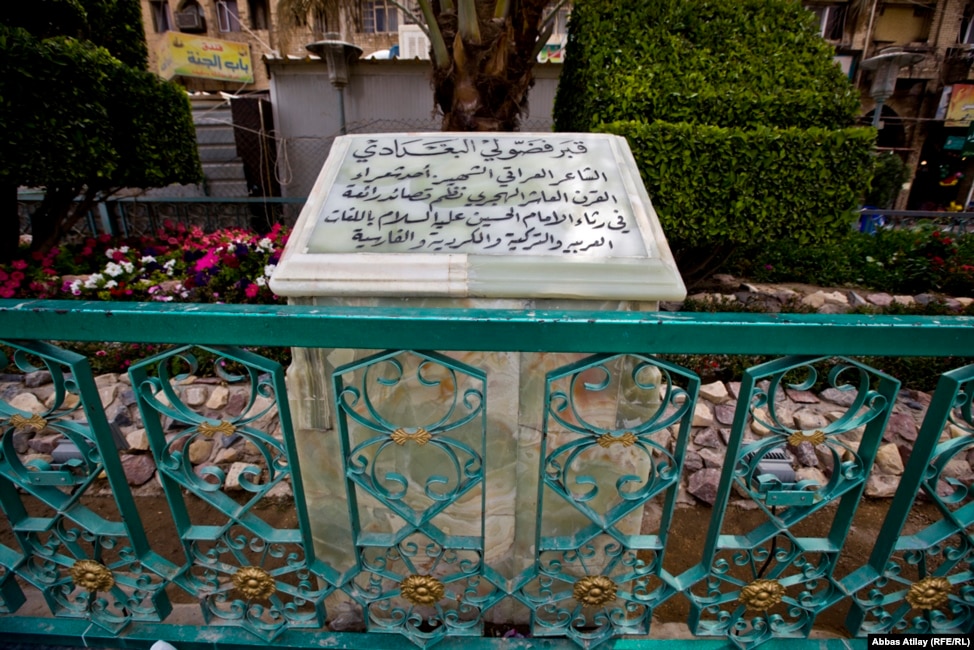 فندق
باب الجنة
قبر فضولي البغدادي
الشاعر العراقي الشهير. أحد شعراء
القرن العاشر الهجري نظم قصائد رائعة
في رثاء الإمام الحسين عليه السلام باللغات
العربيه والتركية والكردية والفارسية
Abbas Atilay (RFE/RL)